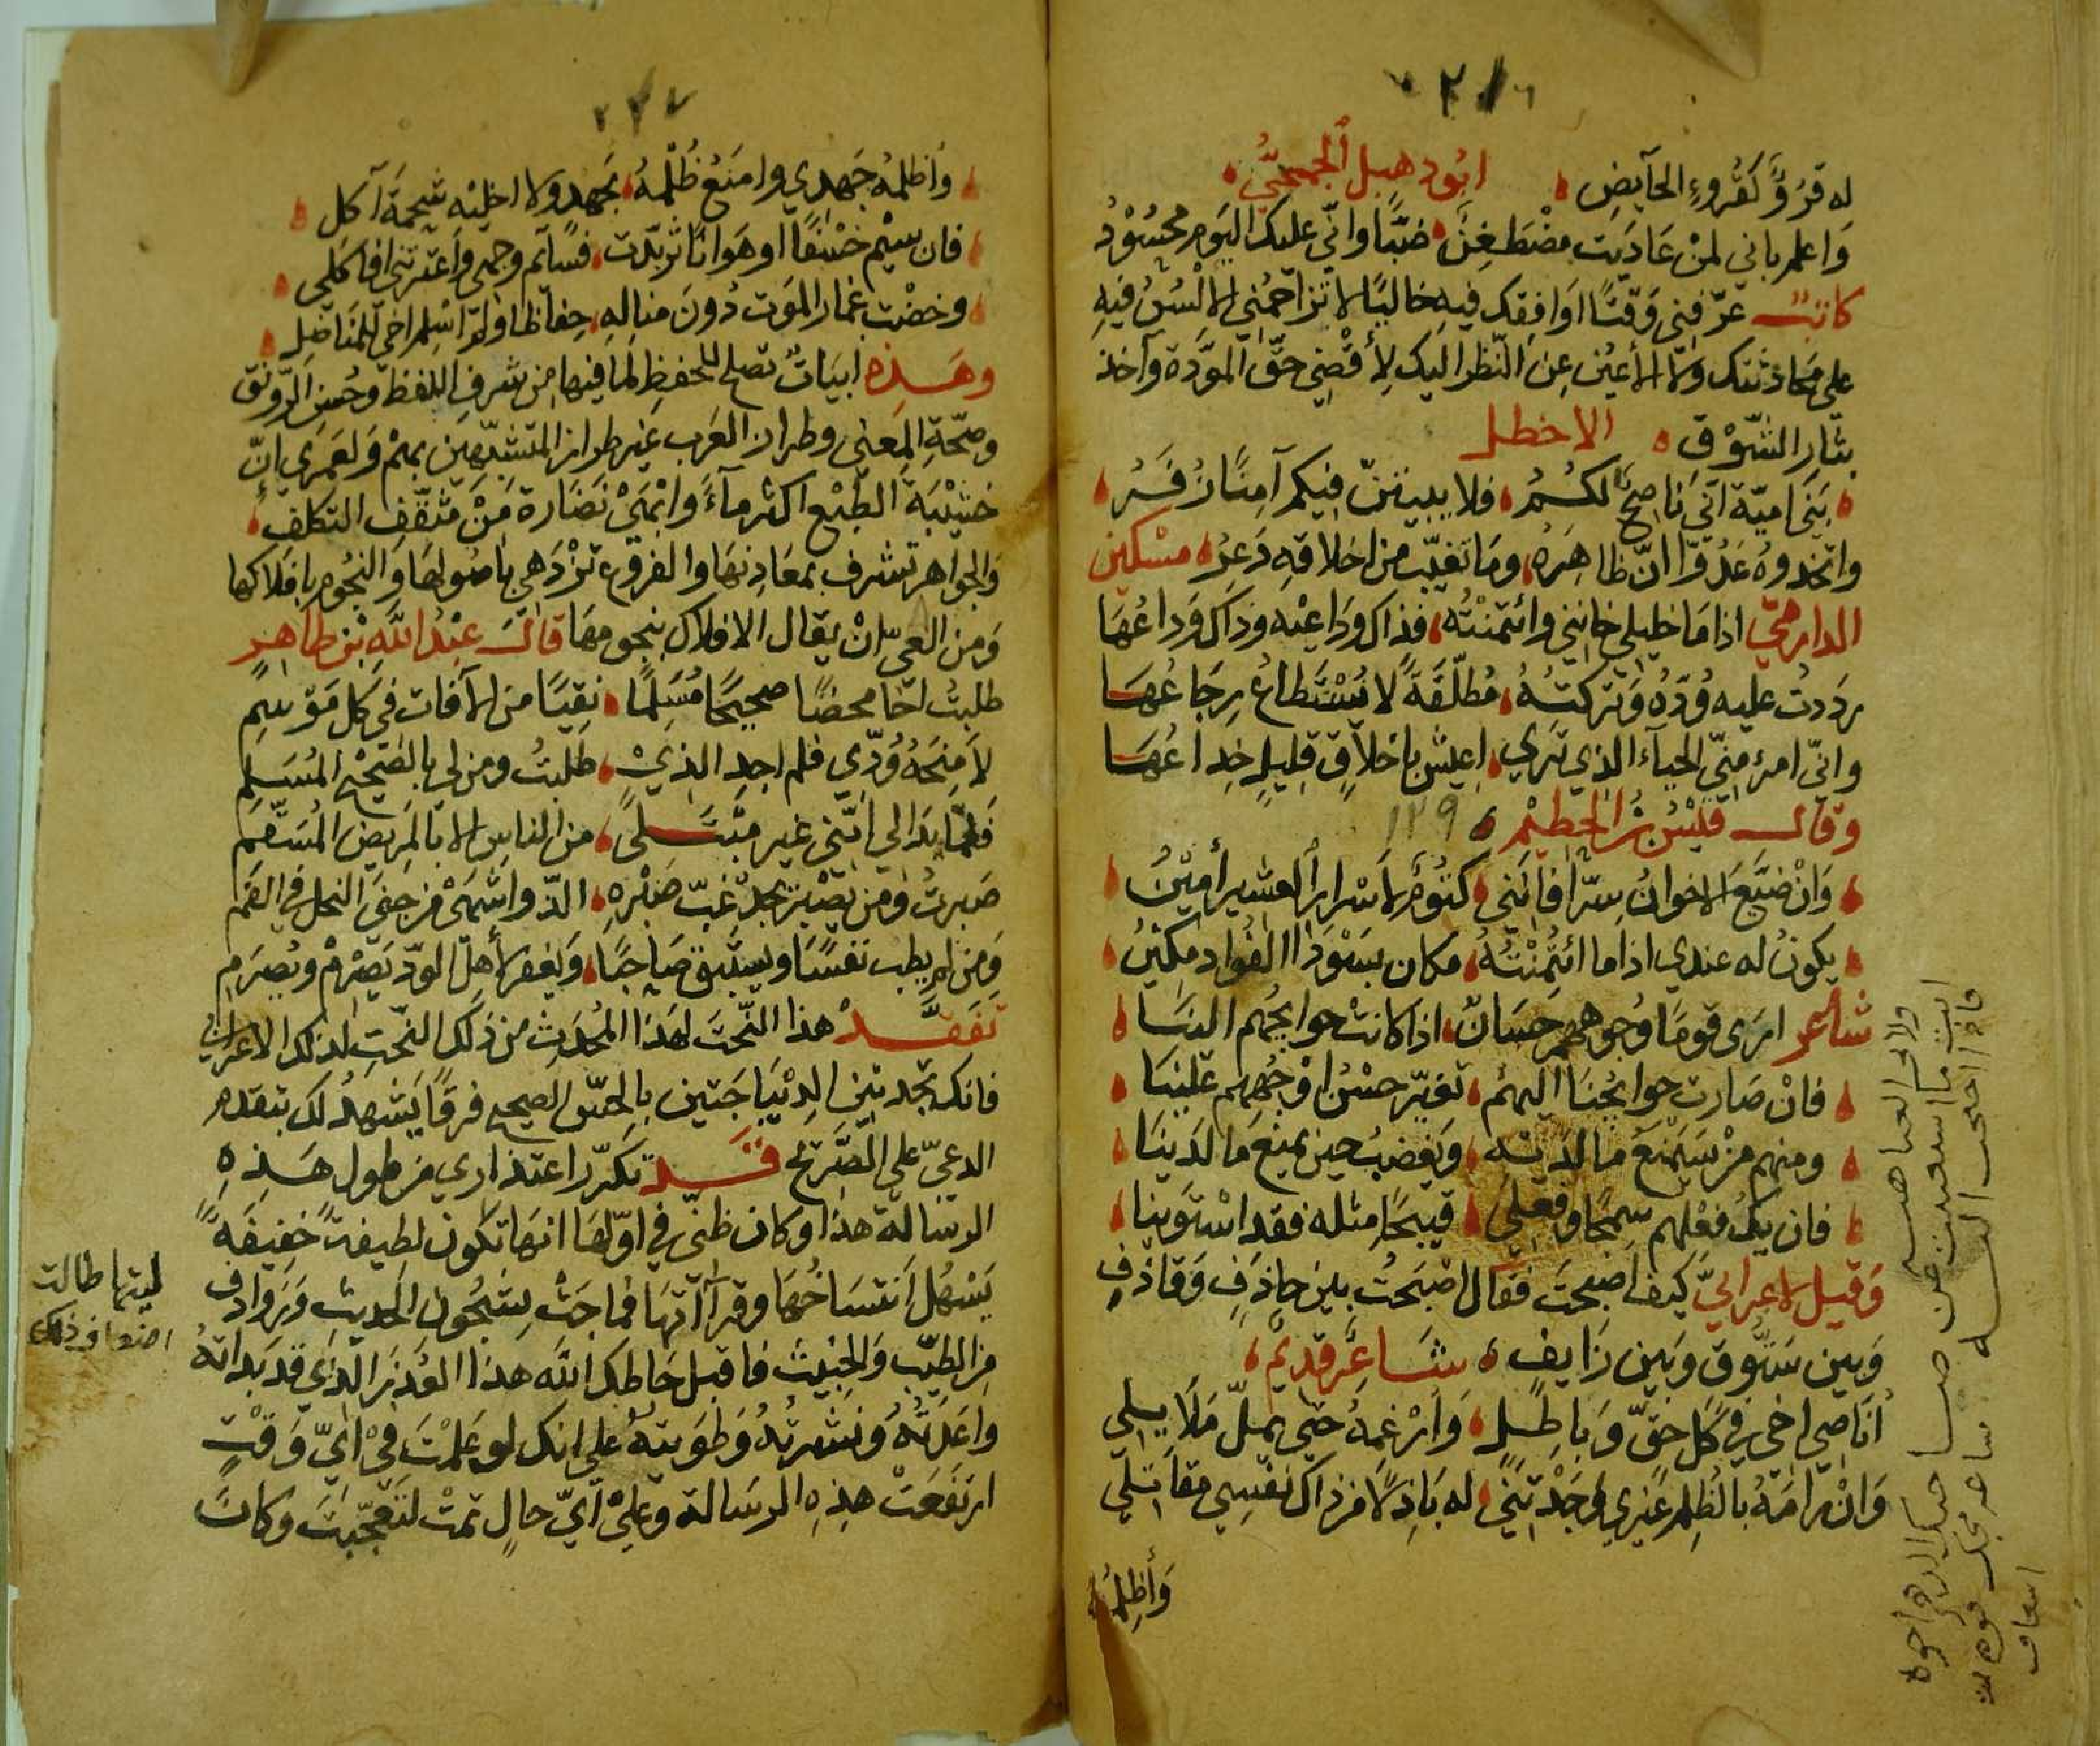 ٢١٦
له قروٌ كقروءِ الحآيضِ ، ابُودهبل الجمحيُّ ،
وَاعلم باني لمنْ عَاديت مضْطَغِنٌ ، ضبًّا واني عليك اليَوم محسُوْدُ
كاتبٌ عرّفني وَقتًا اوَافقك فيهِ خاليًا لا تزاحمُني الالْسُنُ فيهِ
على محَادثتك ولا الأعيُن عِن النّظر اليك لِأقْضِيَ حقّ الموَدّة وآخذ
بثارِ الشّوْق ، الاخطل
، بَني اميّة انّي نَاصِحٌ لكُمُ ، فلا يبيتنّ فيكم آمِنًا زُفَرُ ،
واتخذوهُ عَدُوّا انّ ظاهِرَه ، ومَا تغيّب من اخلاقهِ دَعِرُ ، مسْكين
الدارميّ اذا مَا خليلي خانني وائتمنْتُه ، فذاك ودَاعيْه وذَاك وَداعُهَا
رَددتُ عليه وُدّهُ وَتركتهُ ، مُطلّقَةً لا يُسْتَطاعُ رِجَاعُهَا
وانّي امرء مِنّي الحيآء الذي تري ، اعيش باخلاقٍ قليلٍ خِداعُهَا
وقال قيْسُ بْنُ الخطيْم ، ١٢٩
، وَانْ ضيَّعَ الاخوانُ سِرّا فانّني ، كتُومٌ لأسْرارِ العشير أمِيْنُ ،
، يكونُ له عندي اذا ما ائتُمِنْتُهُ ، مكان بسَوْدَاا الفُوادِ مكِيْنُ ،
شاعر ارَى قومًا وُجوههم حسَانٌ ، اذا كانتْ حوايجُهم الينَا ،
، فانْ صَارت حوايجُنا اليهُم ، تغيّر حسْنُ اوْجُههم عليْنا ،
، ومنهم مَنْ سَيمْنَع مَا لديْه ، وَيغضبُ حين يمْنع مَا لدَينَا ،
، فان يكُ فعْلهم سَمِجًا وفعْلي ، قبيحًا مثله فقد اسْتوَينا ،
وَقيل لاعرابيّ كيف اصبحتَ فقال اصْبَحْتُ بين حاذفٍ وقاذفٍ
وَبين سَتُّوق وَبين زَايفٍ ، شَاعرٌ قديمٌ ،
أنَاصي اخي في كل حقّ وَباطلٍ ، وَارْغمهُ حتي يملّ مَلَايلي
وَانْ رامَهُ بالظلم غيري وَجَدْتَني ، له بَاذِلًا من ذاك نفسِي مقَاتلي
وَأظلِمُه
٢١٧
، وَاظلمُه جَهدي وامنَعُ ظُلْمهُ ، بجَهدٍ ولا اخليْه شحْمَةَ آكل ،
، فان سِيْم خسْفًا او هَوانًا تربّدت ، فسَايم وجهي واعْترتني افاكلي ،
، وخضْت غمار الموَت دُونَ منالهِ ، حِفاظا ولمْ اسْلم اخي للمُنَاضِلِ ،
وهَذه ابيَاتٌ تصلح للحفظِ لما فيهَا من شرفِ اللفظ وحُسْن الرّونق
وصحّةِ المعنى وطراز العَرب غير طراز المتشبّهين بهمْ وَلعَمري انّ
خشيْبَةَ الطبْع اكثر مآءً وانْمَى نَضَارة مِنْ مثقّفِ التكلف ،
والجوَاهر تشرف بمعَادِنهَا والفروع تزْدَهي باصُولها وَالنجُوم بافلاكها
وَمن العيّ انْ يقال الافلاك بنجومهَا قالَ عبْدُ اللّهِ بْن طاهرٍ
طلبتُ اخًا محضًا صحيحًا مُسَلمًا ، نقيّا من الآفات في كل مَوْسِمِ
لأمنَحَهُ وُدّي فلم اجدِ الذيْ ، طلبتُ ومن لي بالصّحيْح المُسَلم
فَلمّا بدَا لي انّني غير مبْتَلىً ، من الناسِ الا بالمَريض المُسَقّم
صَبرتُ ومن يصْبرْ يجدْ غبّ صَبْرهِ ، الذّ واشهَى من جنَى النحل في الفَم
وَمن لم يطبْ نفسًا ويستبْقِ صَاحبًا ، وَيغفر لأهل الودّ يَصْرِمْ ويُصرَم
تفقّدْ هذا النّحتَ لهَذا المُحْدَثِ من ذَلك النّحتِ لذلك الاعرابيّ
فانك تجد بيْن الدّيْبَاجَتين بالحسّ الصحيح فرقًا يَشهدُ لك بتقدّم
الدعيّ علي الصّريح قَدْ تكرّر اعتذاري مِن طول هَذهِ
الرسَالة هذا وكان ظنّي في اوّلها انهَا تكون لطيفة خفيفةً
يَسْهُل انتسَاخُهَا وقرآاتهَا فماجَتْ بشجُون الحَديثِ وَرَوادفِ
مِن الطيّب وَالخبيْث فاقبل حَاطك الله هذا العُذْرَ الذي قد بَدَاتهُ
وَاعَدْتُّهُ وَنشرْتُهُ وَطَوَيته علي انك لو علمْتَ فيْ ايّ وَقْتٍ
ارتفَعَتْ هذهِ الرسَالة وعليْ ايّ حالٍ تمتْ لتَعجّبْتَ وكانَ
ليتها طالت
اضعاف ذلك